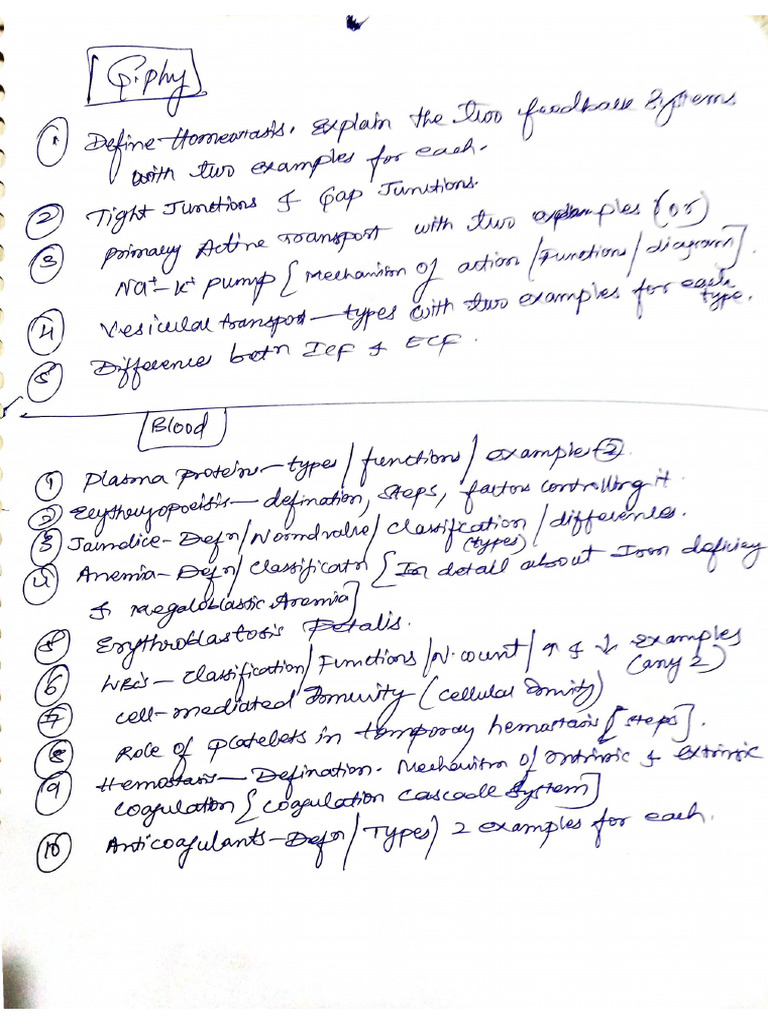 G.phy
① Define Homeostasis. Explain the two feedback systems
with two examples for each.
② Tight Junctions & Gap Junctions.
③ Primary Active Transport with two examples (or)
Na+-K+ pump [Mechanism of action/Functions/diagram].
④ Vesicular transport – types with two examples for each
type.
⑤ Differences betn ICF & ECF.
Blood
① Plasma proteins – types/functions/examples ②.
② Erythropoeisis – defination, steps, factors controlling it.
③ Jaundice – Defn/Normal value/classification/differences.
(types)
④ Anemia – Defn/classificatn [In detail about Iron deficiency
& Megaloblastic Anemia]
⑤ Erythroblastosis Fetalis.
⑥ WBC's – classification/Functions/N.count/↑ & ↓ examples
(any 2)
⑦ cell-mediated Immunity (cellular Immunity)
⑧ Role of platelets in temporary hemostasis [steps].
⑨ Hemostasis – Defination. Mechanism of intrinsic & extrinsic
coagulation [coagulation cascade system]
⑩ Anticoagulants – Defn/Types/2 examples for each.